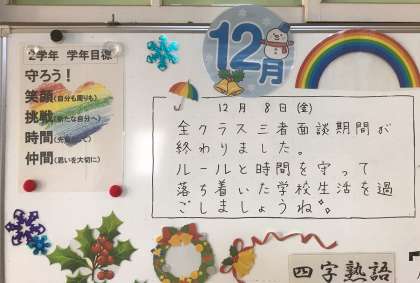 2学年 学年目標
守ろう!
笑顔(自分も周りも)
挑戦(新たな自分へ)
時間
仲間(思いを大切に)
12月
12月 8日(金)
全クラス三者面談期間が
終わりました。
ルールと時間を守って
落ち着いた学校生活を過
ごしましょうね。
四字熟語